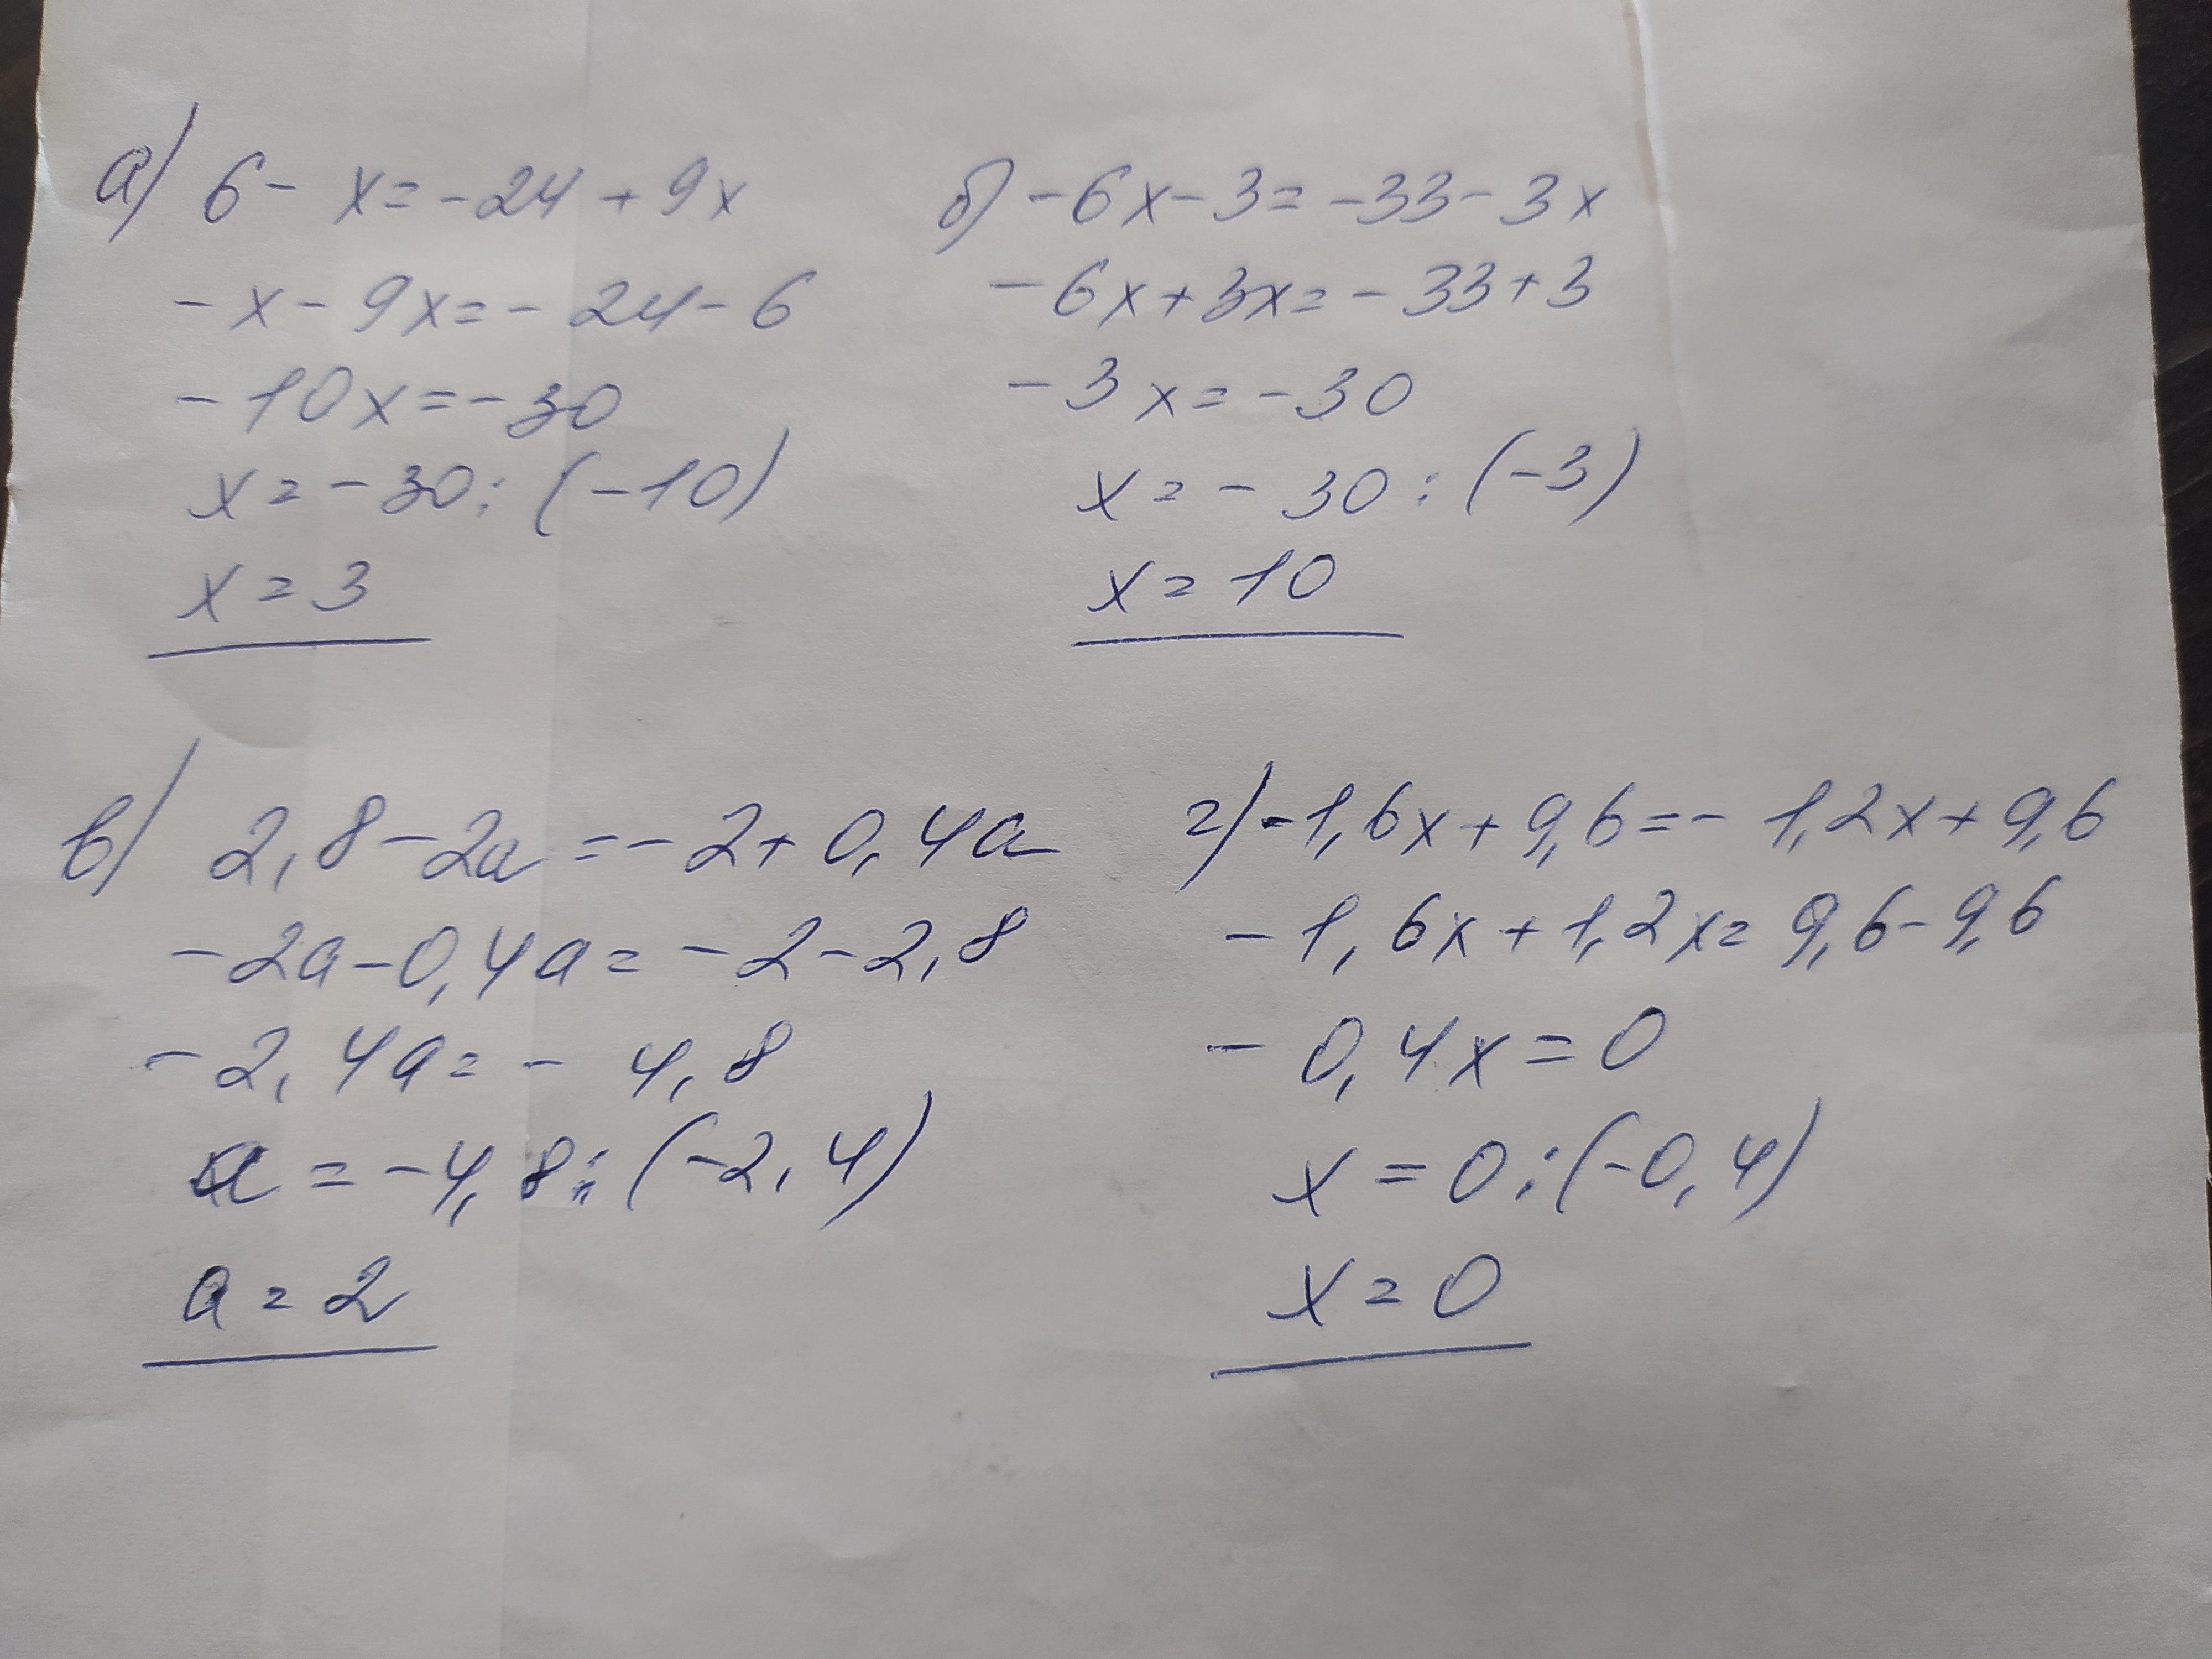 а) 6 - x = -24 + 9x
-x - 9x = -24 - 6
-10x = -30
x = -30 : (-10)
x = 3
б) -6x - 3 = -33 - 3x
-6x + 3x = -33 + 3
-3x = -30
x = -30 : (-3)
x = 10
в) 2,8 - 2a = -2 + 0,4a
-2a - 0,4a = -2 - 2,8
-2,4a = -4,8
a = -4,8 : (-2,4)
a = 2
г) -1,6x + 9,6 = -1,2x + 9,6
-1,6x + 1,2x = 9,6 - 9,6
-0,4x = 0
x = 0 : (-0,4)
x = 0